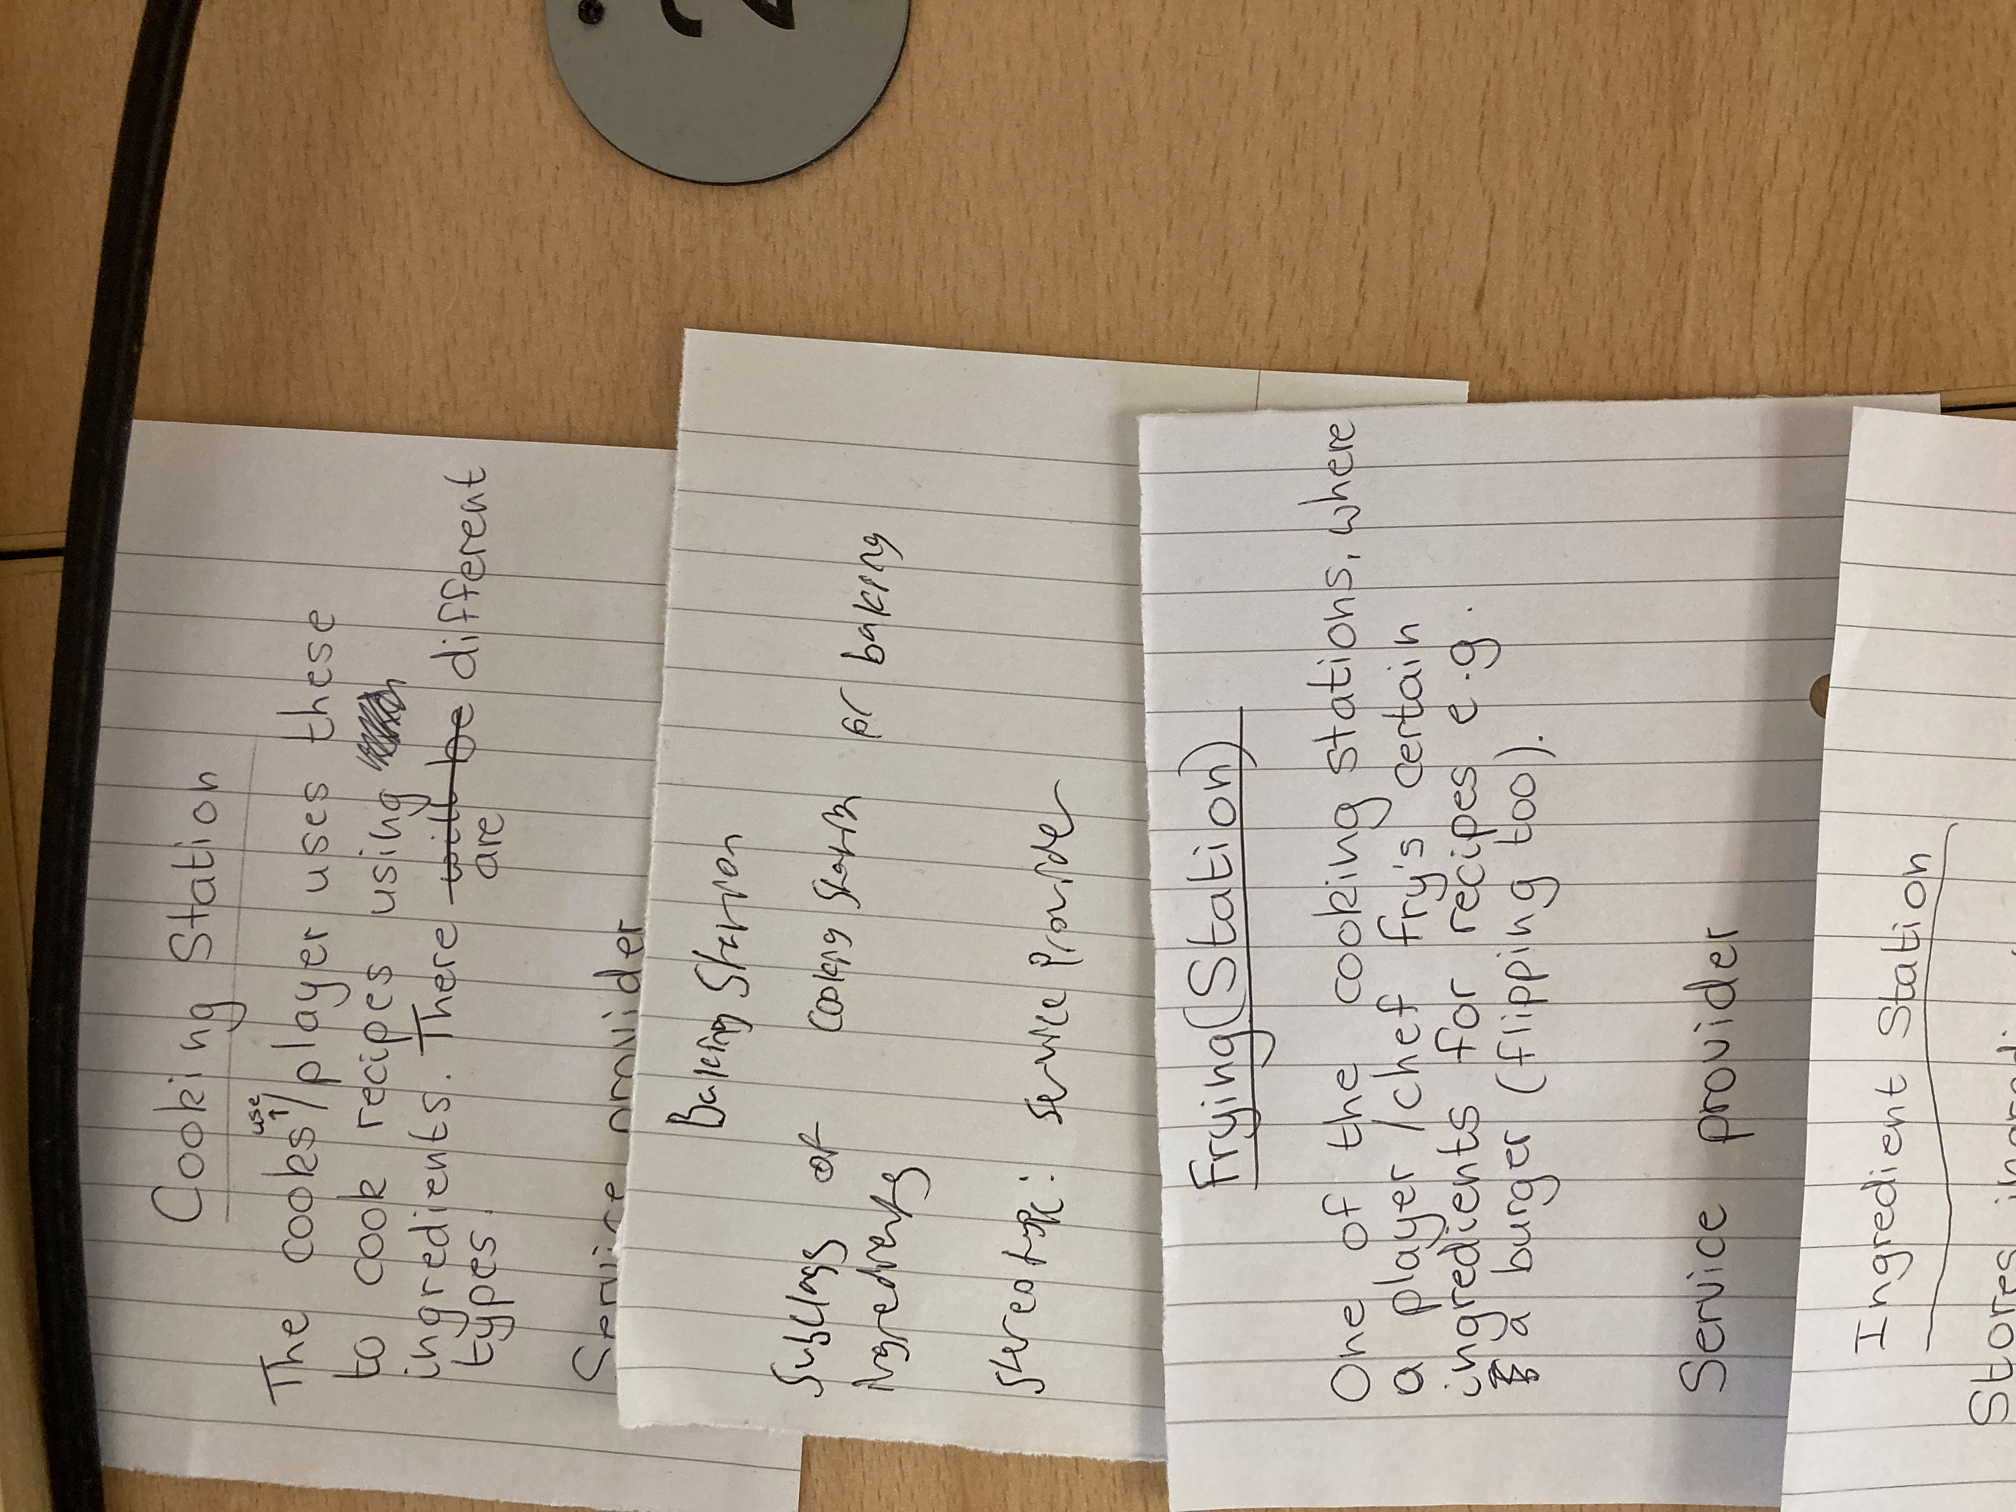 Cooking Station
use
The cooks↑/player uses these
to cook recipes using
ingredients. There will be different
are
types.
Service provider
Baking Station
Subclass of cooking station for baking
ingredients
Stereotype: Service Provider
Frying(Station)
One of the cooking stations, where
a player/chef fry's certain
ingredients for recipes e.g.
a burger (flipping too).
Service provider
Ingredient Station
Stores
2